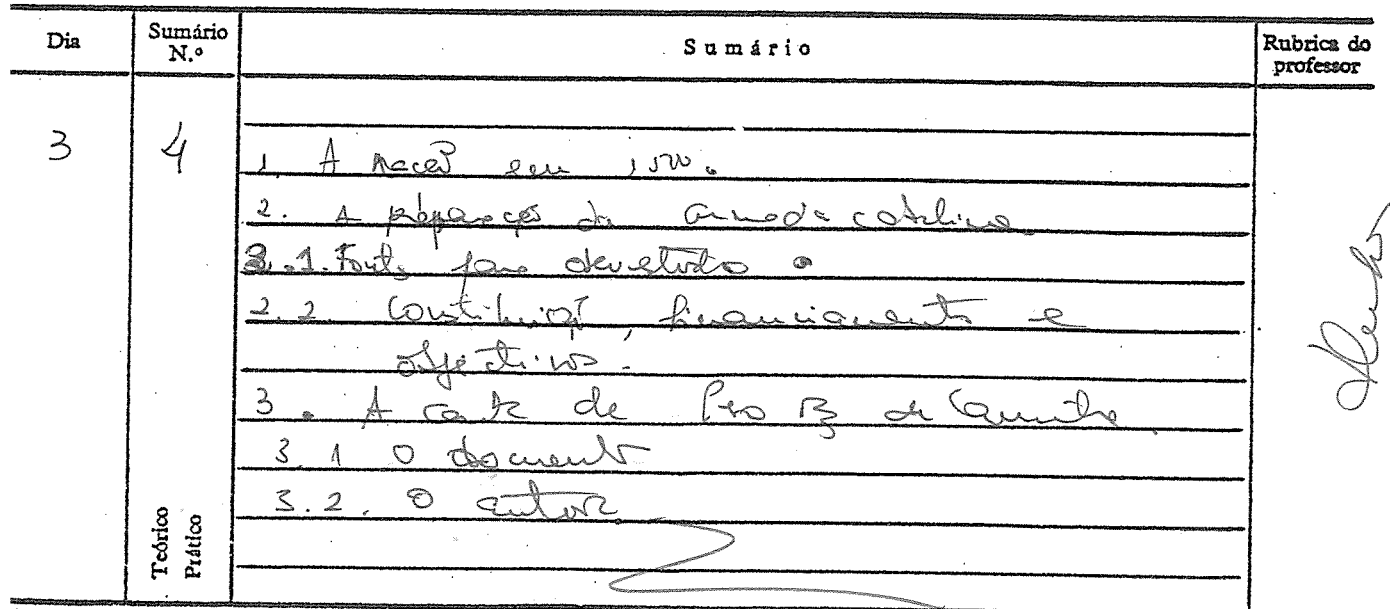 Dia
Sumário N.º
Sumário
Rubrica do professor
3
4
1. A nação em 1500.
2. A preparação da armada cabralina.
2.1. Fontes para
2.2. Constituição, financiamento e
objectivos.
3. A carta de Pero Vz de Caminha.
3.1 O documento
3.2. O autor
Teórico
Prático